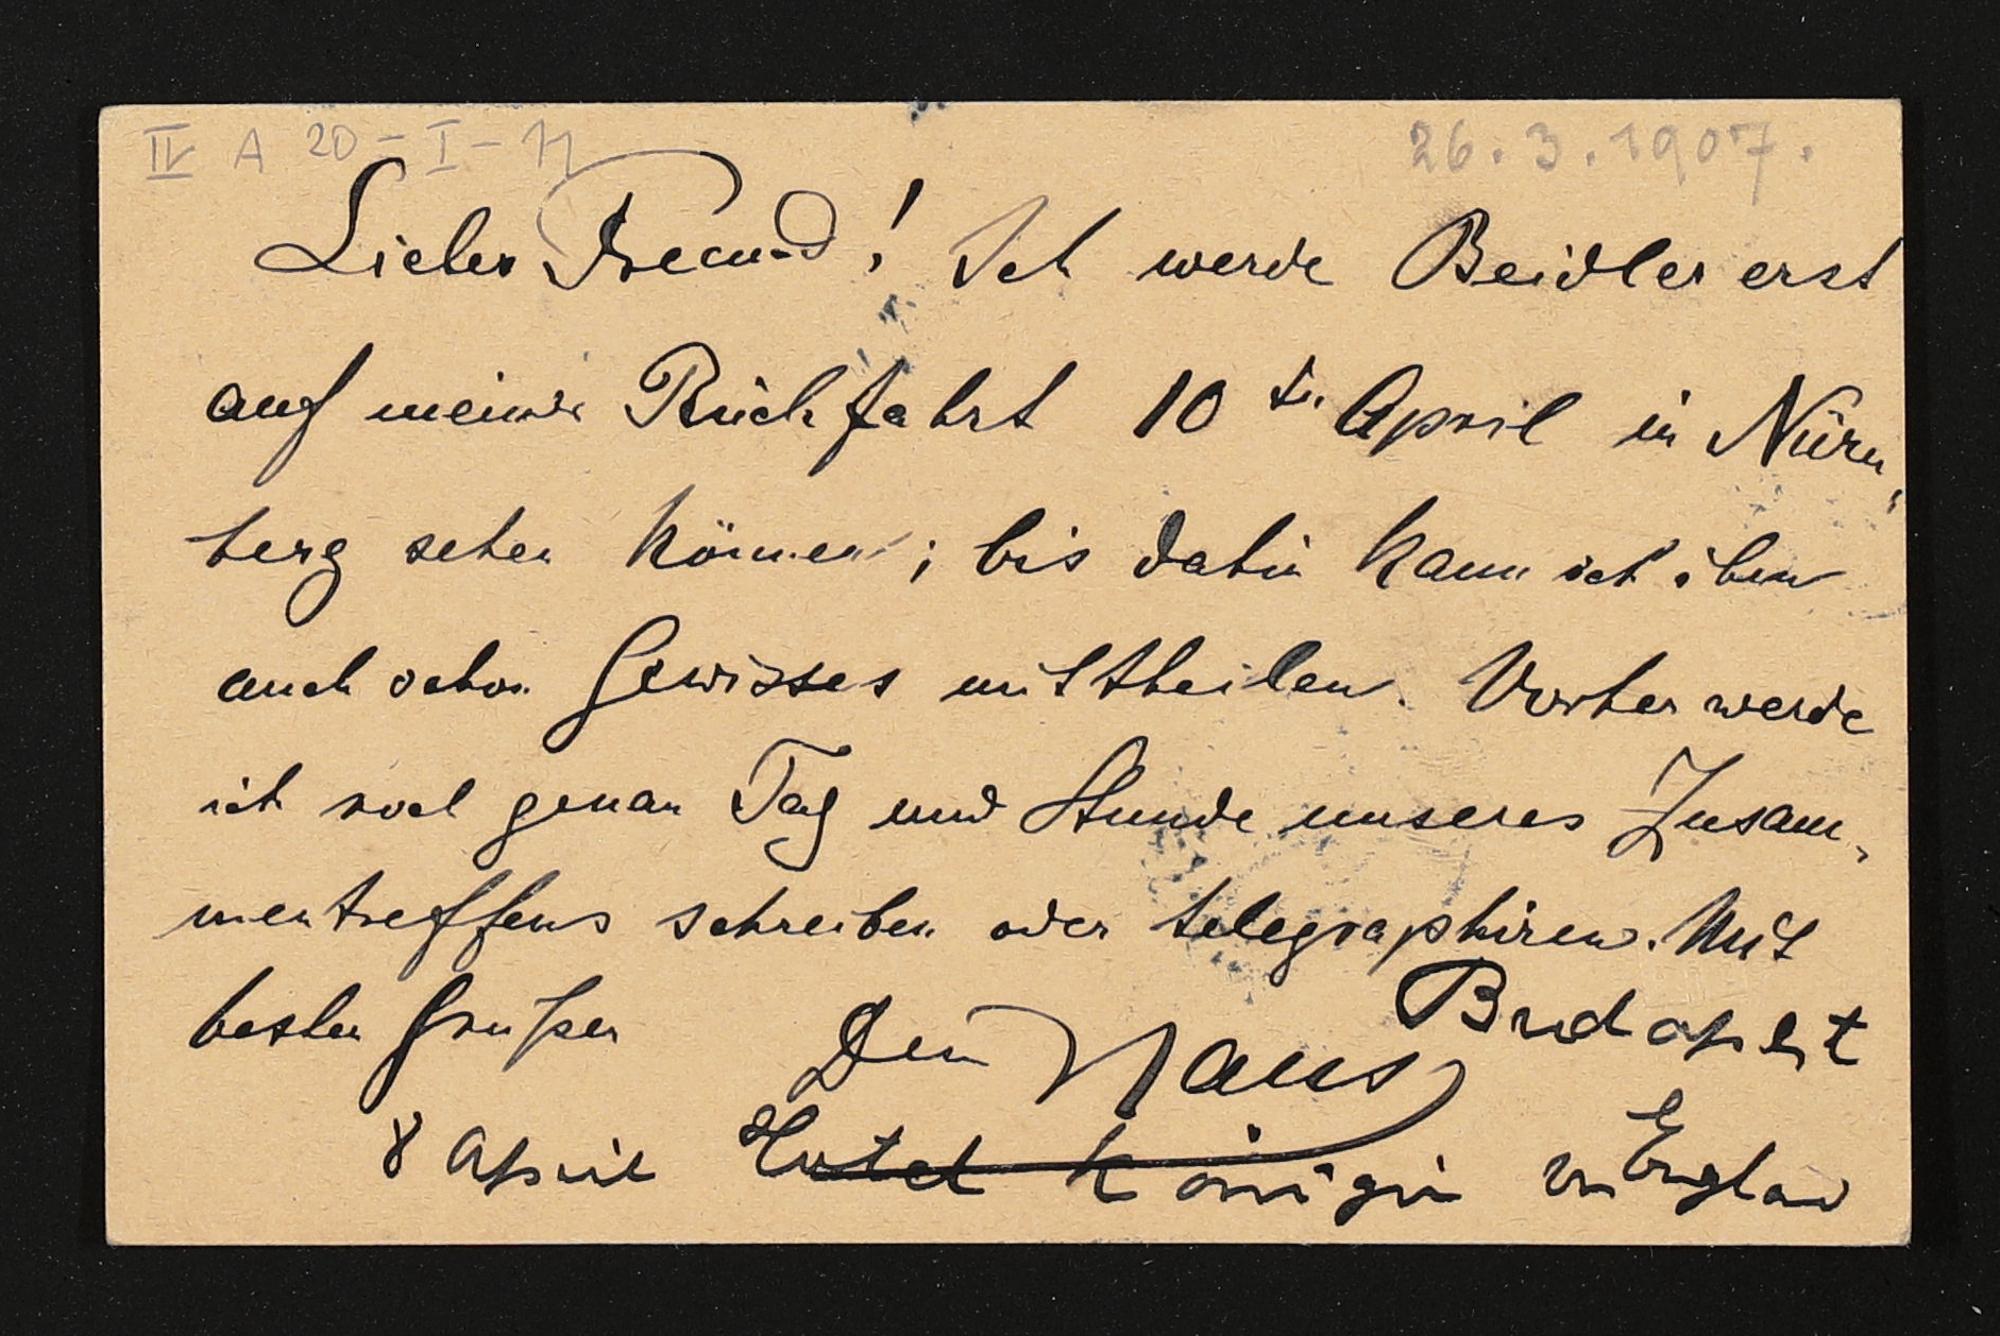 IV A 20-I-11
26.3.1907.
Lieber Freund! Ich werde Beidler erst
auf meiner Rückfahrt 10tn April in Nürn,
berg sehen können; bis dahin kann ich ihm
auch schon Gewisses mittheilen. Vorher werde
ich noch genau Tag und Stunde unseres Zusam,
mentreffens schreiben oder telegraphiren. Mit
besten Grüßen Dein Hans
Budapest
8 April Hotel Königin v. England